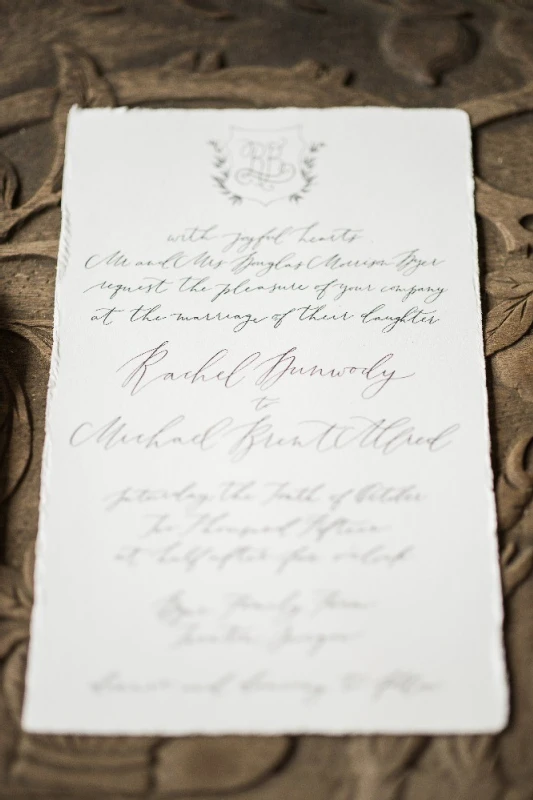 with joyful hearts
Mr and Mrs Douglas Morrison Boyer
request the pleasure of your company
at the marriage of their daughter
Rachel Dunwody
to
Michael Brent Alfred
Saturday, the Tenth of October
Two Thousand Fifteen
at half after five o'clock
Family Farm
Georgia
dinner and dancing to follow